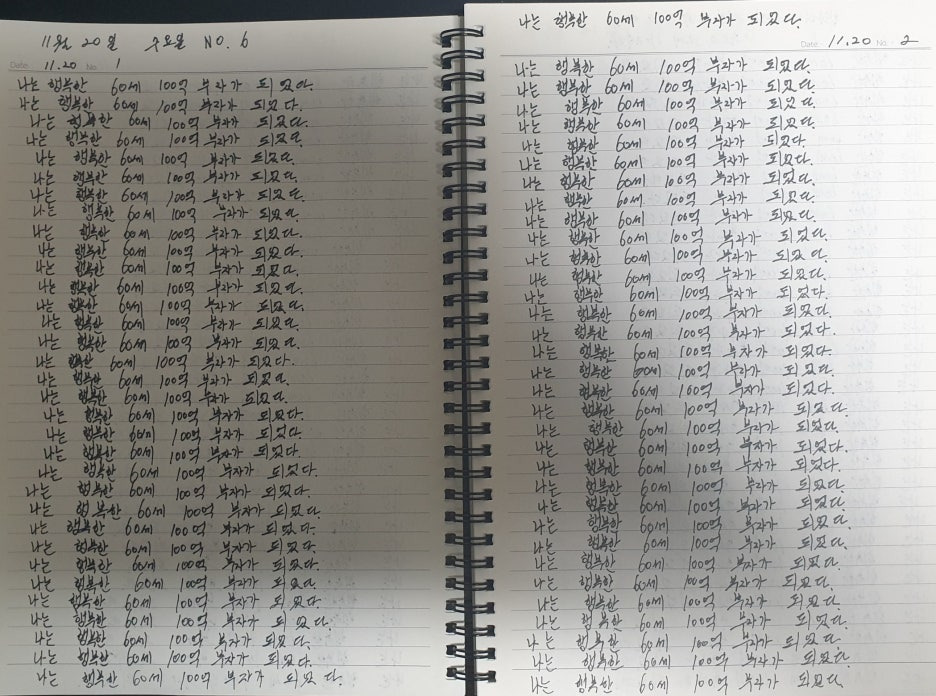 11월 20일 수요일 NO. 6
Date. 11.20 No. 1
나는 행복한 60세 100억 부자가 되었다.
나는 행복한 60세 100억 부자가 되었다.
나는 행복한 60세 100억 부자가 되었다.
나는 행복한 60세 100억 부자가 되었다.
나는 행복한 60세 100억 부자가 되었다.
나는 행복한 60세 100억 부자가 되었다.
나는 행복한 60세 100억 부자가 되었다.
나는 행복한 60세 100억 부자가 되었다.
나는 행복한 60세 100억 부자가 되었다.
나는 행복한 60세 100억 부자가 되었다.
나는 행복한 60세 100억 부자가 되었다.
나는 행복한 60세 100억 부자가 되었다.
나는 행복한 60세 100억 부자가 되었다.
나는 행복한 60세 100억 부자가 되었다.
나는 행복한 60세 100억 부자가 되었다.
나는 행복한 60세 100억 부자가 되었다.
나는 행복한 60세 100억 부자가 되었다.
나는 행복한 60세 100억 부자가 되었다.
나는 행복한 60세 100억 부자가 되었다.
나는 행복한 60세 100억 부자가 되었다.
나는 행복한 60세 100억 부자가 되었다.
나는 행복한 60세 100억 부자가 되었다.
나는 행복한 60세 100억 부자가 되었다.
나는 행복한 60세 100억 부자가 되었다.
나는 행복한 60세 100억 부자가 되었다.
나는 행복한 60세 100억 부자가 되었다.
나는 행복한 60세 100억 부자가 되었다.
나는 행복한 60세 100억 부자가 되었다.
나는 행복한 60세 100억 부자가 되었다.
나는 행복한 60세 100억 부자가 되었다.
나는 행복한 60세 100억 부자가 되었다.
나는 행복한 60세 100억 부자가 되었다.
나는 행복한 60세 100억 부자가 되었다.
나는 행복한 60세 100억 부자가 되었다.
Date. 11.20 No. 2
나는 행복한 60세 100억 부자가 되었다.
나는 행복한 60세 100억 부자가 되었다.
나는 행복한 60세 100억 부자가 되었다.
나는 행복한 60세 100억 부자가 되었다.
나는 행복한 60세 100억 부자가 되었다.
나는 행복한 60세 100억 부자가 되었다.
나는 행복한 60세 100억 부자가 되었다.
나는 행복한 60세 100억 부자가 되었다.
나는 행복한 60세 100억 부자가 되었다.
나는 행복한 60세 100억 부자가 되었다.
나는 행복한 60세 100억 부자가 되었다.
나는 행복한 60세 100억 부자가 되었다.
나는 행복한 60세 100억 부자가 되었다.
나는 행복한 60세 100억 부자가 되었다.
나는 행복한 60세 100억 부자가 되었다.
나는 행복한 60세 100억 부자가 되었다.
나는 행복한 60세 100억 부자가 되었다.
나는 행복한 60세 100억 부자가 되었다.
나는 행복한 60세 100억 부자가 되었다.
나는 행복한 60세 100억 부자가 되었다.
나는 행복한 60세 100억 부자가 되었다.
나는 행복한 60세 100억 부자가 되었다.
나는 행복한 60세 100억 부자가 되었다.
나는 행복한 60세 100억 부자가 되었다.
나는 행복한 60세 100억 부자가 되었다.
나는 행복한 60세 100억 부자가 되었다.
나는 행복한 60세 100억 부자가 되었다.
나는 행복한 60세 100억 부자가 되었다.
나는 행복한 60세 100억 부자가 되었다.
나는 행복한 60세 100억 부자가 되었다.
나는 행복한 60세 100억 부자가 되었다.
나는 행복한 60세 100억 부자가 되었다.
나는 행복한 60세 100억 부자가 되었다.